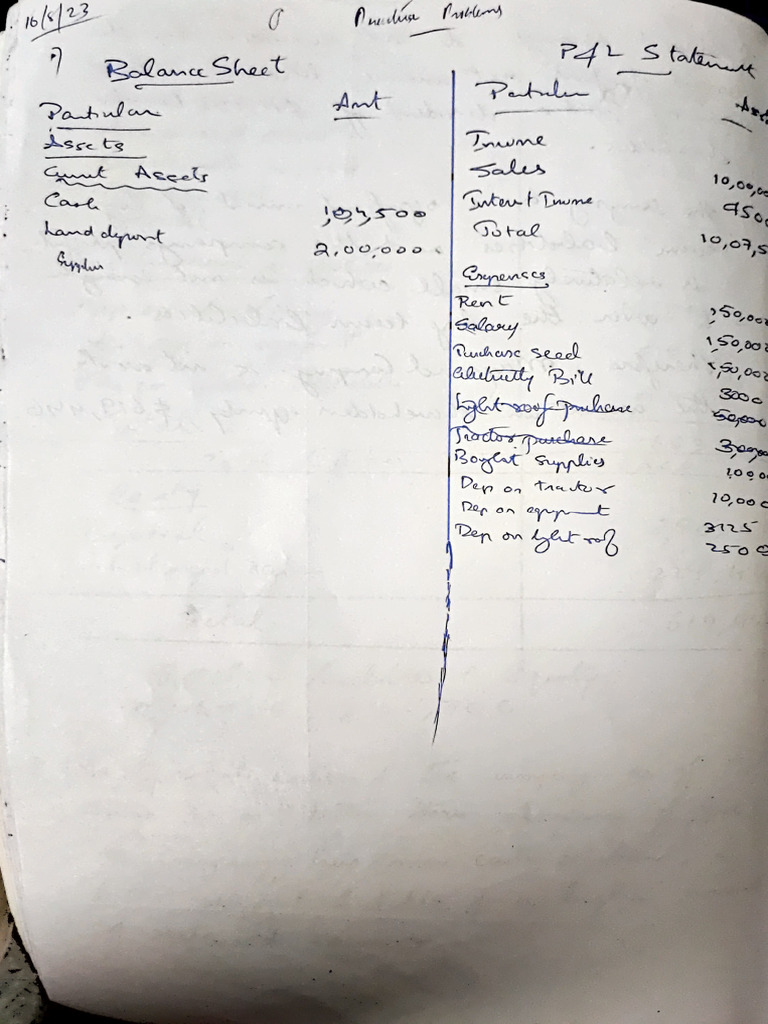 16/8/23
Practise Problems
1)
Balance Sheet
Particular Amt
Assets
Current Assets
Cash
Land deposit 2,00,000
Supplies
P & L Statement
Particular
Income
Sales 10,00,00
Interest Income
Total 10,07,5
Expenses
Rent
Salary 1,50,000
Purchase seed
Electricity Bill 3000
Light roof purchase 50,000
Tractor purchase
Boyht Supplies
Dep on tractor 10,000
Dep on equipment 3125
Dep on light roof 2500